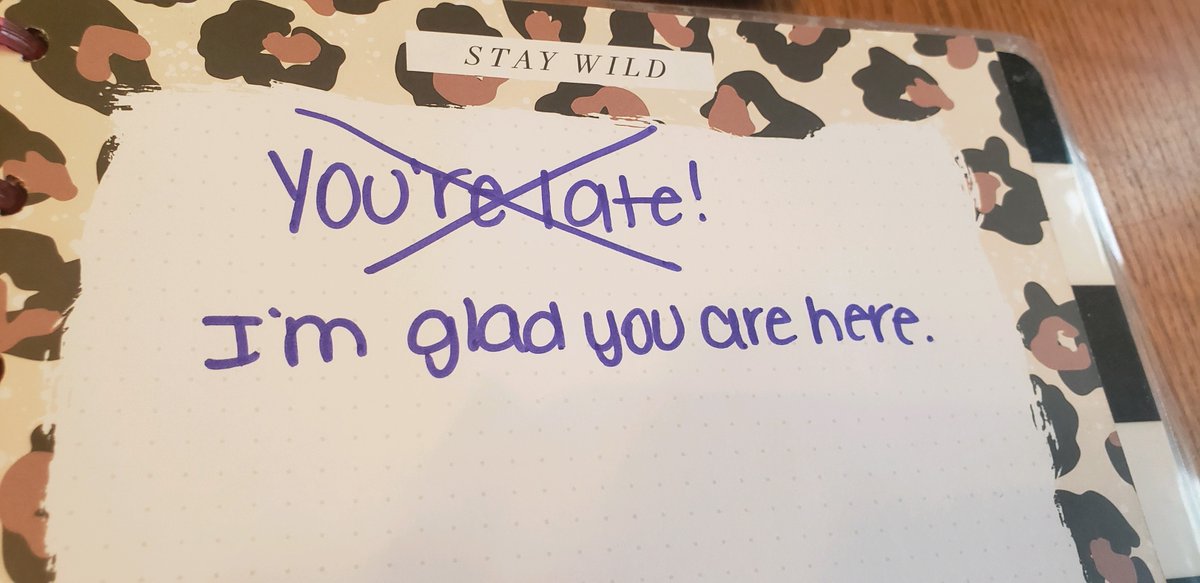 STAY WILD
You're late!
I'm glad you are here.